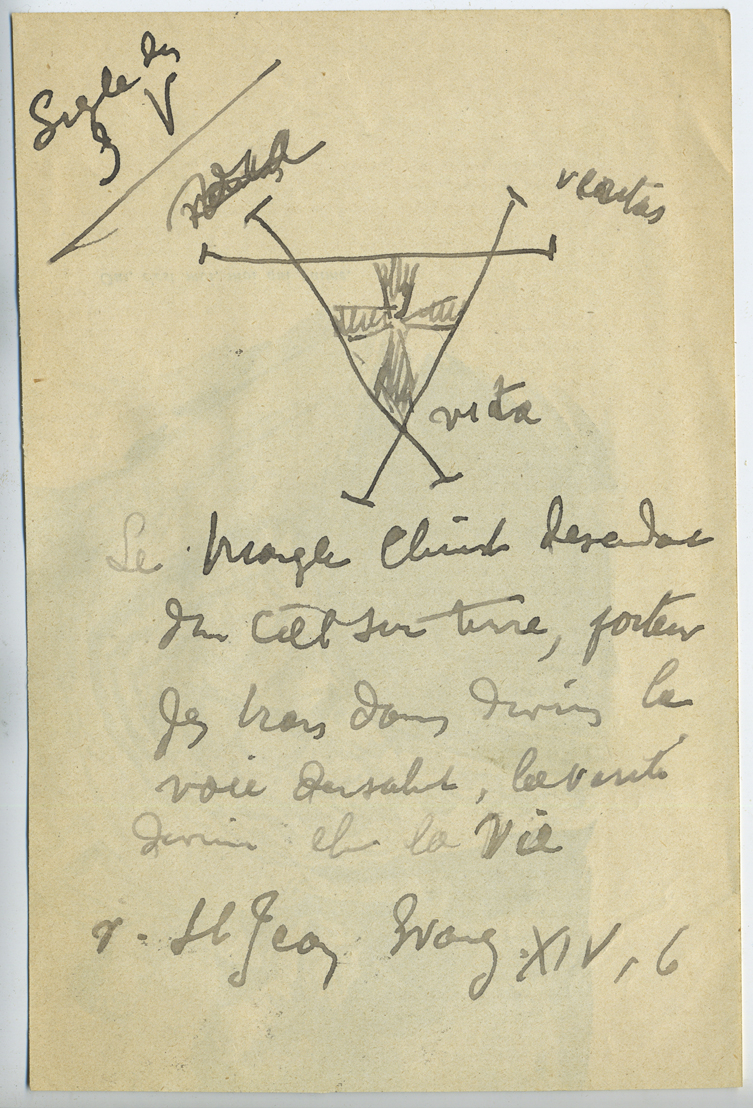 Sigle des
3 V
veritas
vita
Le triangle Christ descendant
du Ciel sur terre, porteur
des trois dons divins la
voie du salut, la verité
divine et la Vie
v. St Jean Evang. XIV, 6